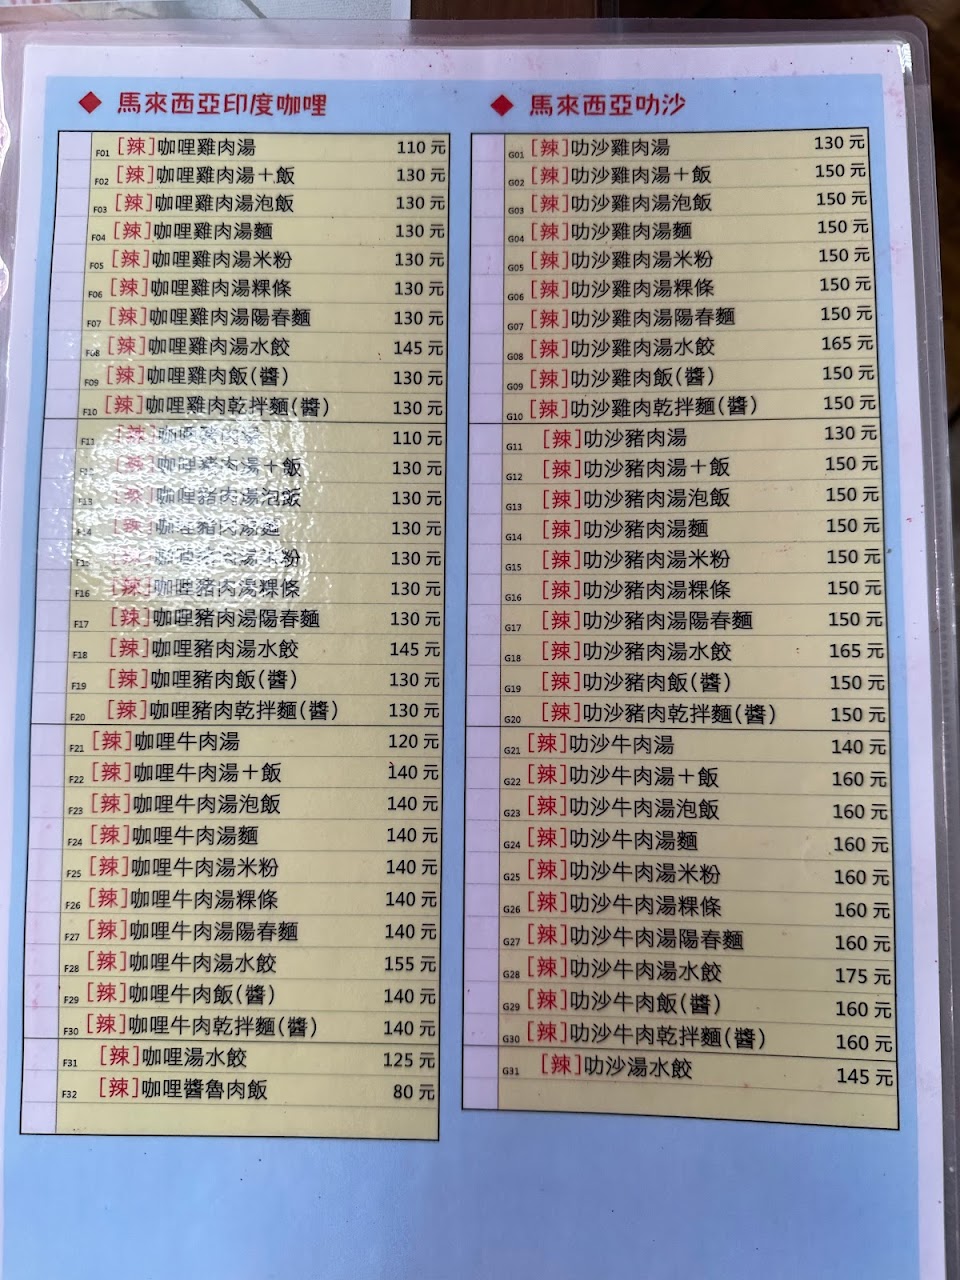 ◆ 馬來西亞印度咖哩
F01 [辣]咖哩雞肉湯 110 元
F02 [辣]咖哩雞肉湯+飯 130 元
F03 [辣]咖哩雞肉湯泡飯 130 元
F04 [辣]咖哩雞肉湯麵 130 元
F05 [辣]咖哩雞肉湯米粉 130 元
F06 [辣]咖哩雞肉湯粿條 130 元
F07 [辣]咖哩雞肉湯陽春麵 130 元
F08 [辣]咖哩雞肉湯水餃 145 元
F09 [辣]咖哩雞肉飯(醬) 130 元
F10 [辣]咖哩雞肉乾拌麵(醬) 130 元
F11 [辣]咖哩豬肉湯 110 元
F12 [辣]咖哩豬肉湯+飯 130 元
F13 [辣]咖哩豬肉湯泡飯 130 元
F14 [辣]咖哩豬肉湯麵 130 元
F15 [辣]咖哩豬肉湯米粉 130 元
F16 [辣]咖哩豬肉湯粿條 130 元
F17 [辣]咖哩豬肉湯陽春麵 130 元
F18 [辣]咖哩豬肉湯水餃 145 元
F19 [辣]咖哩豬肉飯(醬) 130 元
F20 [辣]咖哩豬肉乾拌麵(醬) 130 元
F21 [辣]咖哩牛肉湯 120 元
F22 [辣]咖哩牛肉湯+飯 140 元
F23 [辣]咖哩牛肉湯泡飯 140 元
F24 [辣]咖哩牛肉湯麵 140 元
F25 [辣]咖哩牛肉湯米粉 140 元
F26 [辣]咖哩牛肉湯粿條 140 元
F27 [辣]咖哩牛肉湯陽春麵 140 元
F28 [辣]咖哩牛肉湯水餃 155 元
F29 [辣]咖哩牛肉飯(醬) 140 元
F30 [辣]咖哩牛肉乾拌麵(醬) 140 元
F31 [辣]咖哩湯水餃 125 元
F32 [辣]咖哩醬魯肉飯 80 元
◆ 馬來西亞叻沙
G01 [辣]叻沙雞肉湯 130 元
G02 [辣]叻沙雞肉湯+飯 150 元
G03 [辣]叻沙雞肉湯泡飯 150 元
G04 [辣]叻沙雞肉湯麵 150 元
G05 [辣]叻沙雞肉湯米粉 150 元
G06 [辣]叻沙雞肉湯粿條 150 元
G07 [辣]叻沙雞肉湯陽春麵 150 元
G08 [辣]叻沙雞肉湯水餃 165 元
G09 [辣]叻沙雞肉飯(醬) 150 元
G10 [辣]叻沙雞肉乾拌麵(醬) 150 元
G11 [辣]叻沙豬肉湯 130 元
G12 [辣]叻沙豬肉湯+飯 150 元
G13 [辣]叻沙豬肉湯泡飯 150 元
G14 [辣]叻沙豬肉湯麵 150 元
G15 [辣]叻沙豬肉湯米粉 150 元
G16 [辣]叻沙豬肉湯粿條 150 元
G17 [辣]叻沙豬肉湯陽春麵 150 元
G18 [辣]叻沙豬肉湯水餃 165 元
G19 [辣]叻沙豬肉飯(醬) 150 元
G20 [辣]叻沙豬肉乾拌麵(醬) 150 元
G21 [辣]叻沙牛肉湯 140 元
G22 [辣]叻沙牛肉湯+飯 160 元
G23 [辣]叻沙牛肉湯泡飯 160 元
G24 [辣]叻沙牛肉湯麵 160 元
G25 [辣]叻沙牛肉湯米粉 160 元
G26 [辣]叻沙牛肉湯粿條 160 元
G27 [辣]叻沙牛肉湯陽春麵 160 元
G28 [辣]叻沙牛肉湯水餃 175 元
G29 [辣]叻沙牛肉飯(醬) 160 元
G30 [辣]叻沙牛肉乾拌麵(醬) 160 元
G31 [辣]叻沙湯水餃 145 元